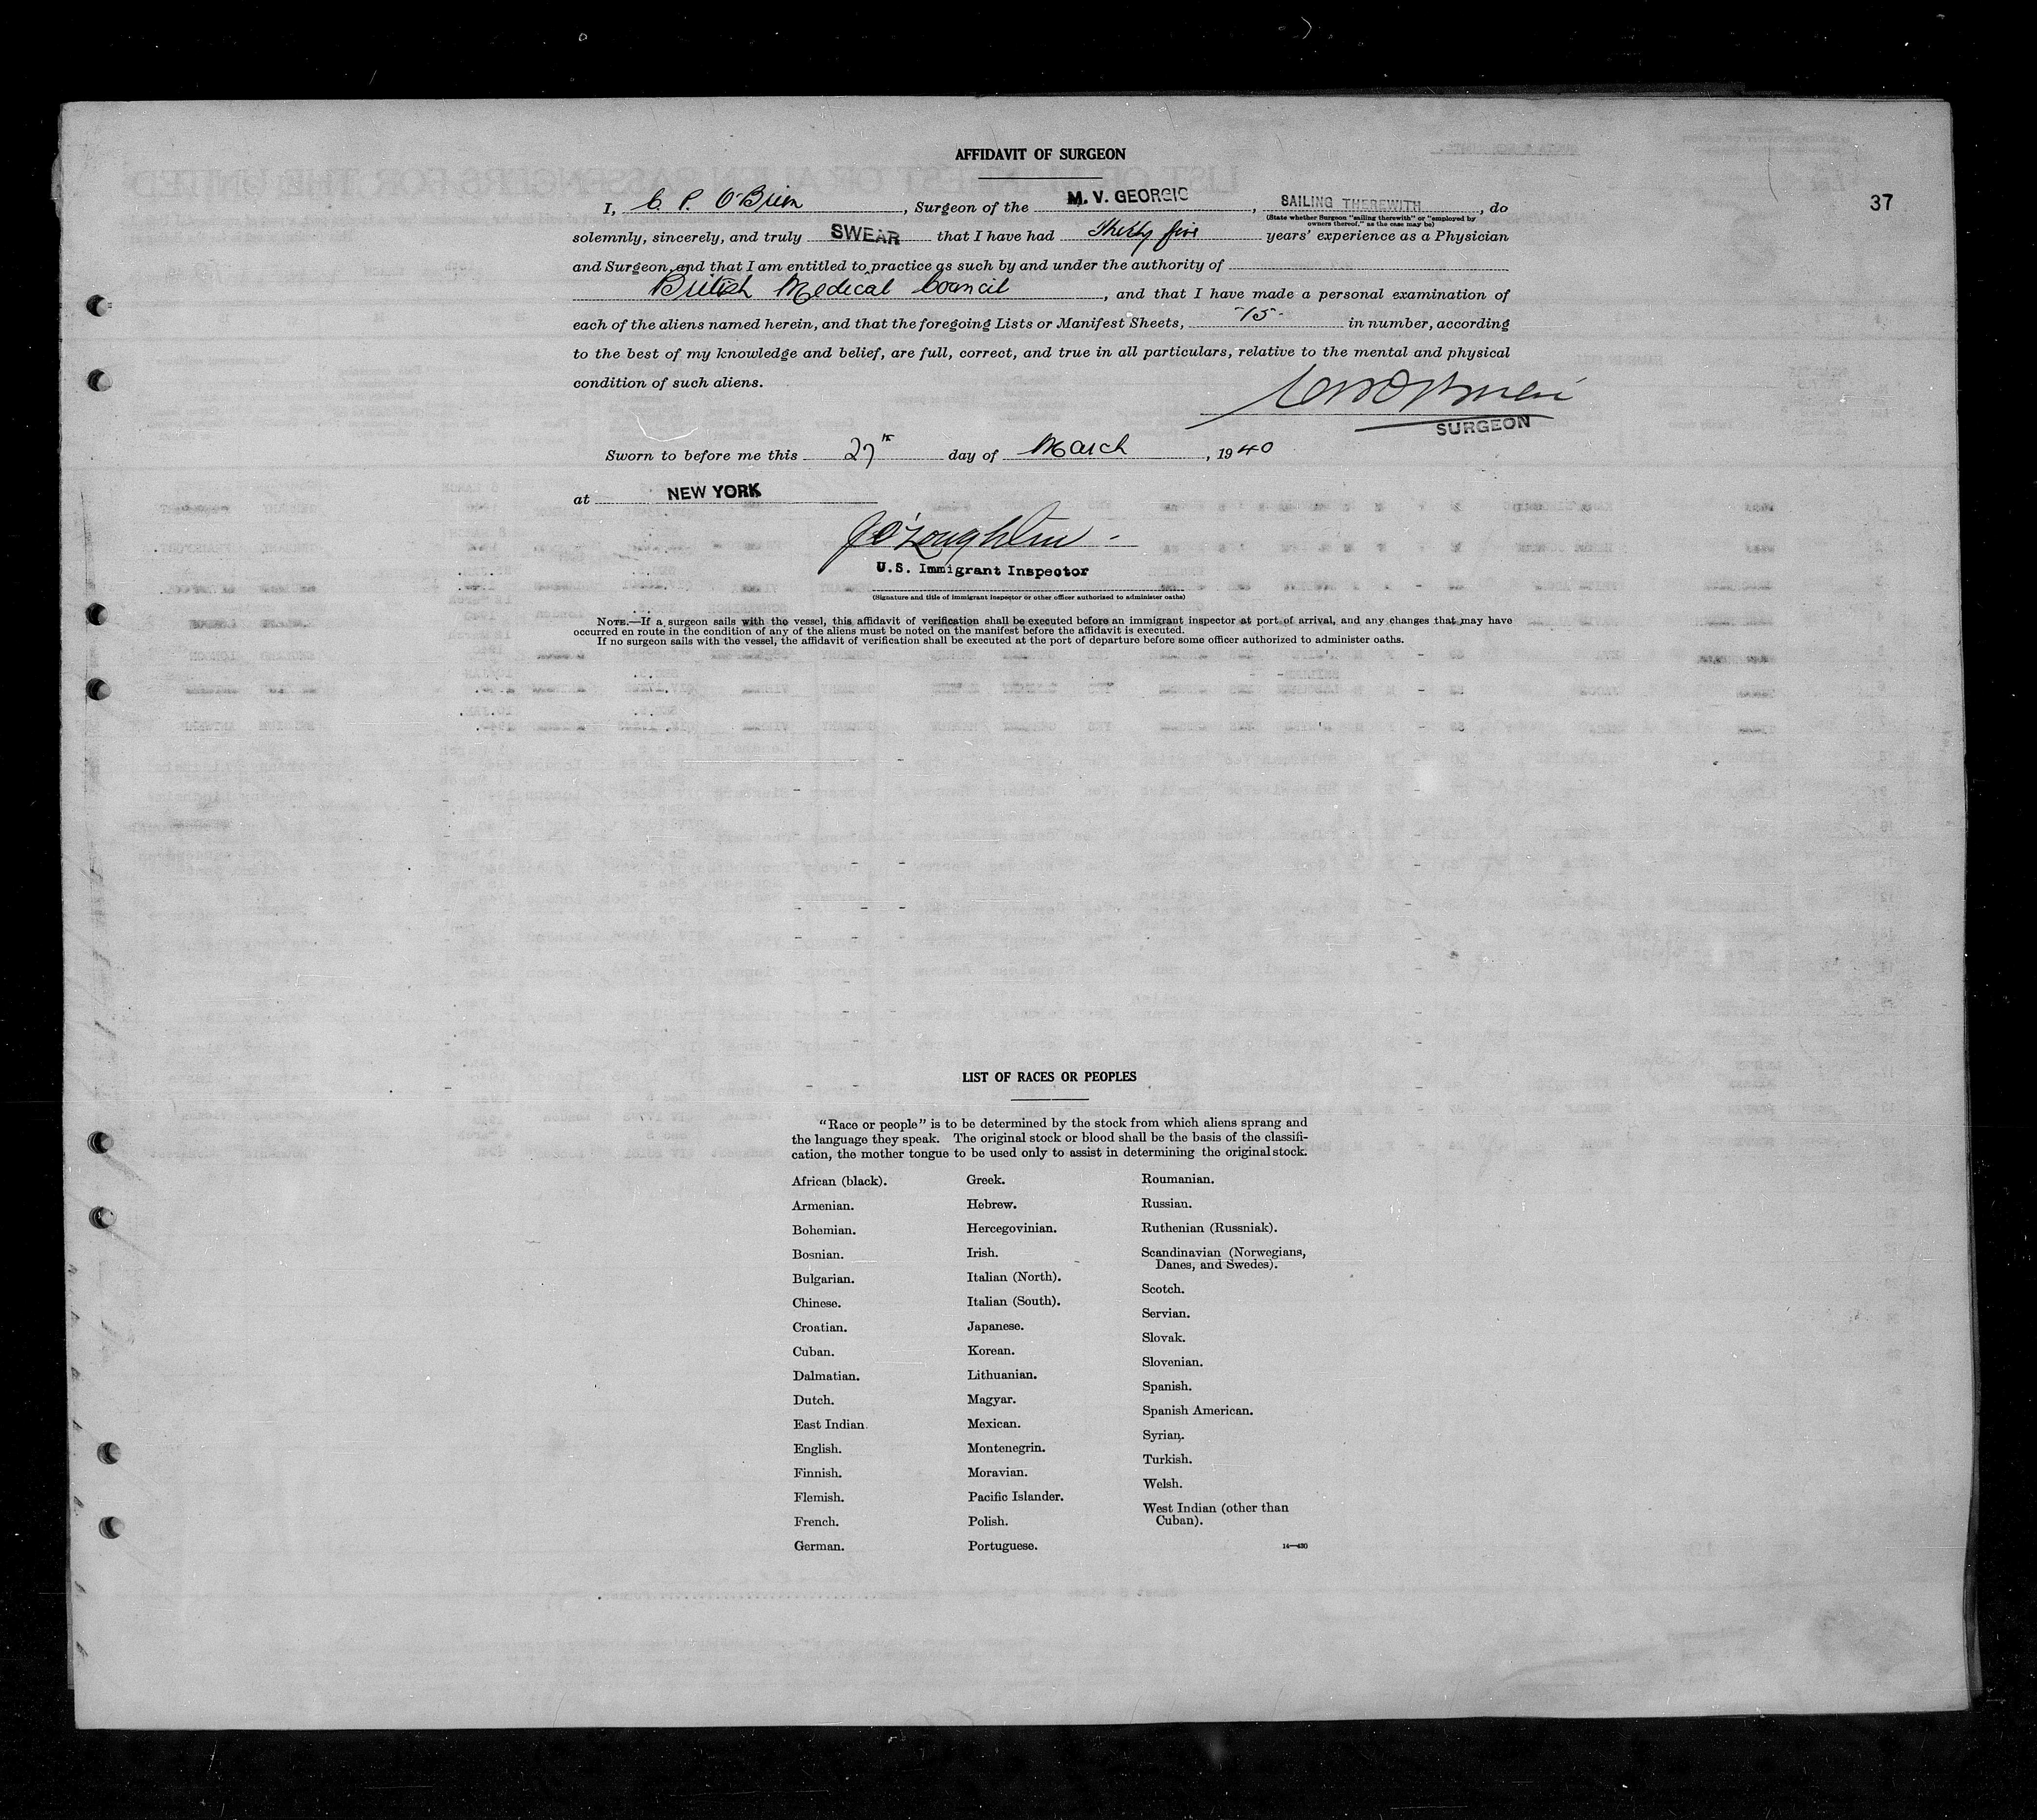 37
AFFIDAVIT OF SURGEON
I, C. P. O'Brien, Surgeon of the M. V. GEORGIC, SAILING THEREWITH, do
(State whether Surgeon "sailing therewith" or "employed by owners thereof," as the case may be)
solemnly, sincerely, and truly SWEAR that I have had Thirty five years' experience as a Physician
and Surgeon, and that I am entitled to practice as such by and under the authority of
British Medical Council, and that I have made a personal examination of
each of the aliens named herein, and that the foregoing Lists or Manifest Sheets, -15- in number, according
to the best of my knowledge and belief, are full, correct, and true in all particulars, relative to the mental and physical
condition of such aliens.
SURGEON
Sworn to before me this 27th day of March, 1940
at NEW YORK
J O'Loughlin
U.S. Immigrant Inspector
(Signature and title of immigrant inspector or other officer authorized to administer oaths)
NOTE.—If a surgeon sails with the vessel, this affidavit of verification shall be executed before an immigrant inspector at port of arrival, and any changes that may have
occurred en route in the condition of any of the aliens must be noted on the manifest before the affidavit is executed.
If no surgeon sails with the vessel, the affidavit of verification shall be executed at the port of departure before some officer authorized to administer oaths.
LIST OF RACES OR PEOPLES
"Race or people" is to be determined by the stock from which aliens sprang and
the language they speak. The original stock or blood shall be the basis of the classifi-
cation, the mother tongue to be used only to assist in determining the original stock.
African (black).
Armenian.
Bohemian.
Bosnian.
Bulgarian.
Chinese.
Croatian.
Cuban.
Dalmatian.
Dutch.
East Indian.
English.
Finnish.
Flemish.
French.
German.
Greek.
Hebrew.
Hercegovinian.
Irish.
Italian (North).
Italian (South).
Japanese.
Korean.
Lithuanian.
Magyar.
Mexican.
Montenegrin.
Moravian.
Pacific Islander.
Polish.
Portuguese.
Roumanian.
Russian.
Ruthenian (Russniak).
Scandinavian (Norwegians,
Danes, and Swedes).
Scotch.
Servian.
Slovak.
Slovenian.
Spanish.
Spanish American.
Syrian.
Turkish.
Welsh.
West Indian (other than
Cuban).
14—430